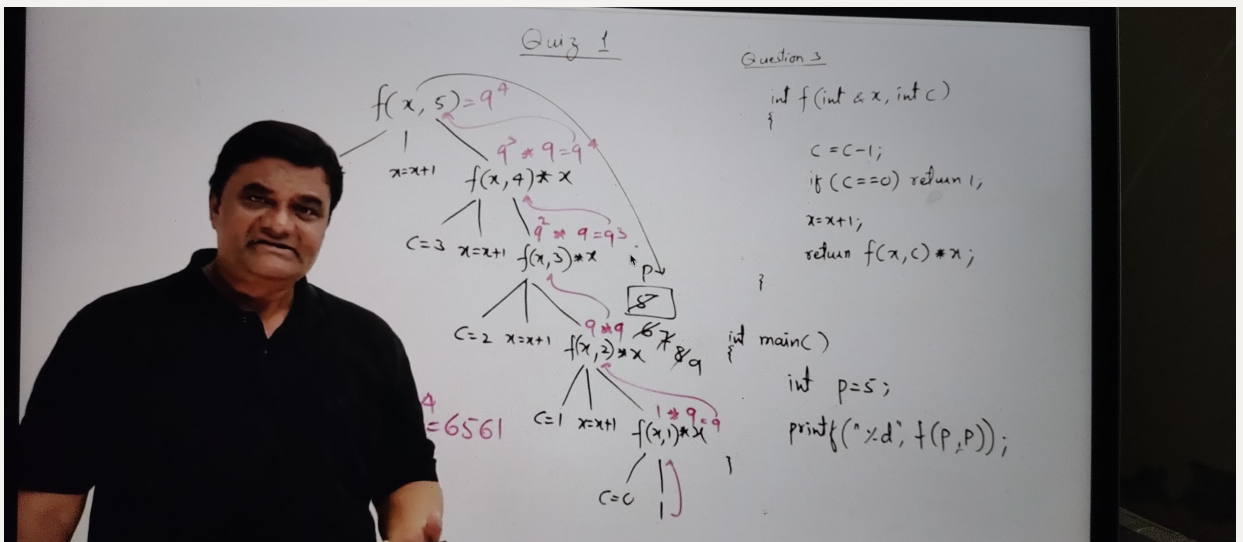 Quiz 1
f(x, 5)=9^4
x=x+1
9^3 * 9=9^4
f(x,4)* x
C=3 x=x+1
9^2 * 9=9^3
f(x,3)*x
P
5
6 7 8 9
9*9
C=2 x=x+1
f(x,2)*x
C=1 x=x+1
1*9=9
f(x,1)*x
C=0
1
4
=6561
Question 3
int f(int & x, int c)
{
c=c-1;
if (c==0) return 1;
x=x+1;
return f(x,c)*x;
}
int main()
{
int p=5;
printf("%d", f(P,P));
}